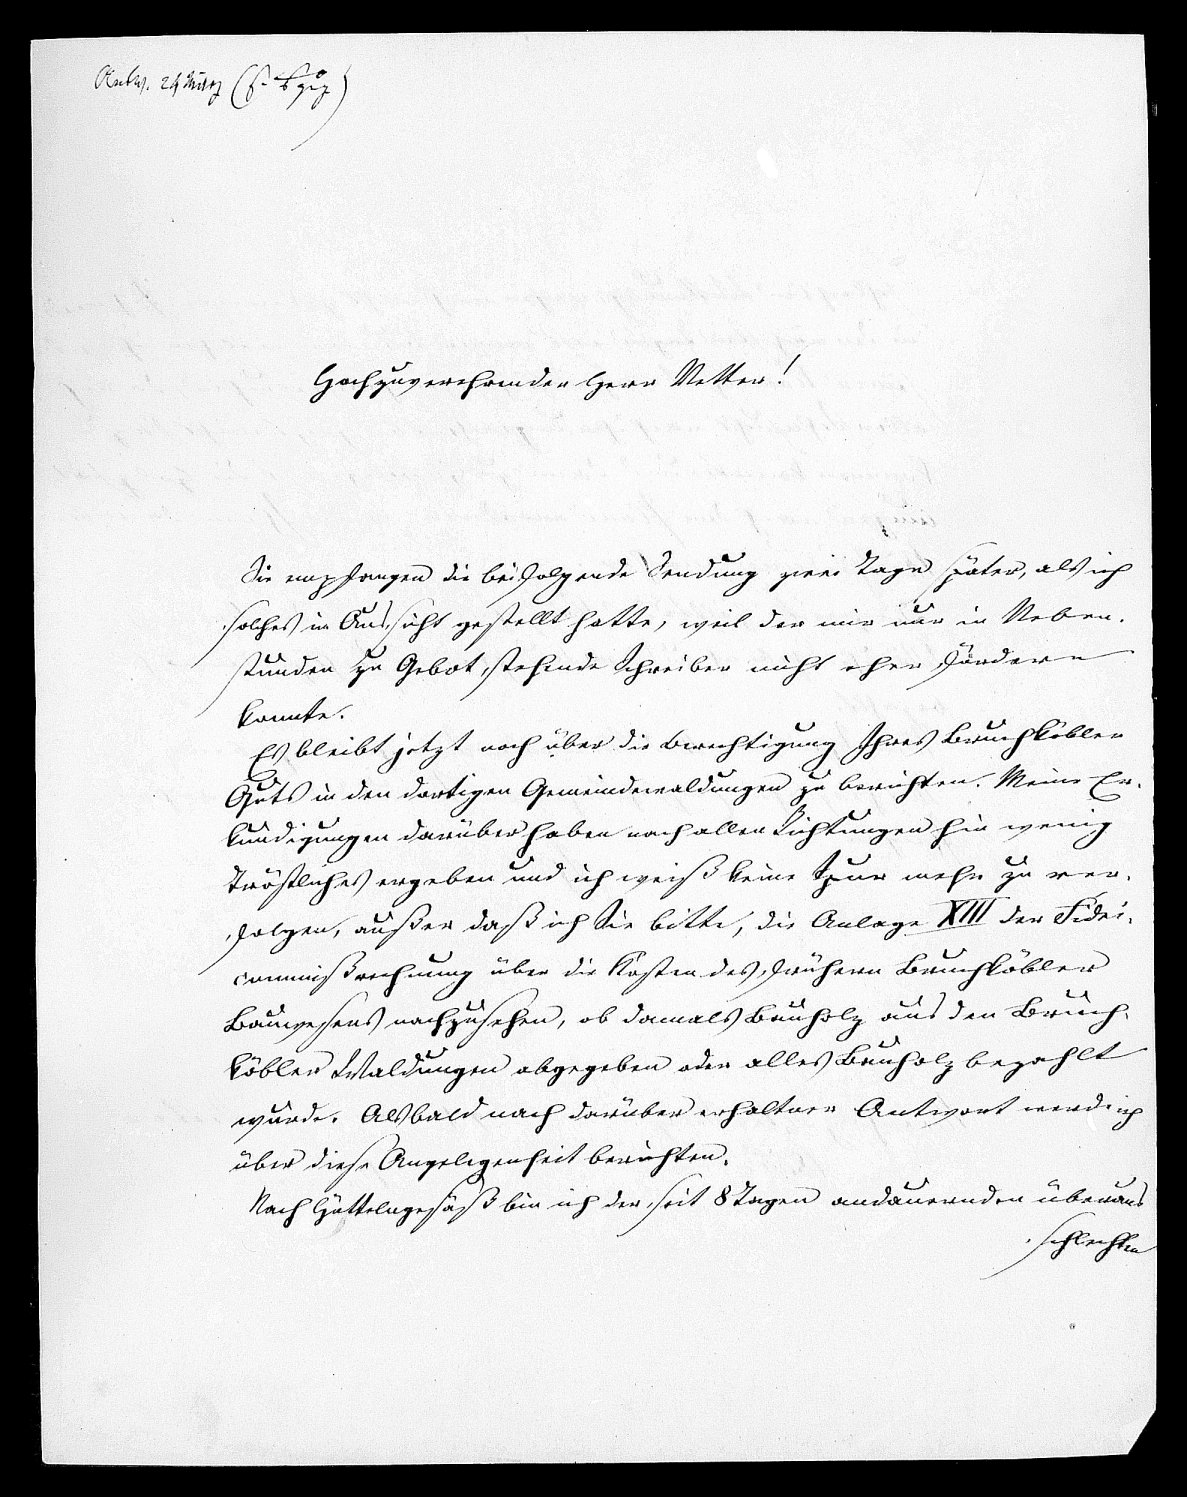 Antw. 24 März
Hochzuverehrender Herr Vetter!
Sie empfangen die beifolgende Sendung zwei Tage später, als ich
solches in Aussicht gestellt hatte, weil der mir nur in Neben-
stunden zu Gebot stehende Schreiber nicht eher fördern
konnte.
Es bleibt jetzt noch über die Berechtigung Ihres Bruchköbler
Guts in den dortigen Gemeindewaldungen zu berichten. Meine Er-
kundigungen darüber haben nach allen Richtungen hin wenig
Tröstliches ergeben und ich weiß keine Spur mehr zu ver-
folgen, außer daß ich Sie bitte, die Anlage XIII der Fidei-
commißrechnung über die Kosten des frühern Bruchköbler
Bauwesens nachzusehen, ob damals Bauholz aus den Bruch-
köbler Waldungen abgegeben oder alles Bauholz bezahlt
wurde. Alsbald nach darüber erhaltner Antwort werde ich
über diese Angelegenheit berichten.
Nach Hüttelngesäß bin ich der seit 8 Tagen andauernden überaus
schlechten